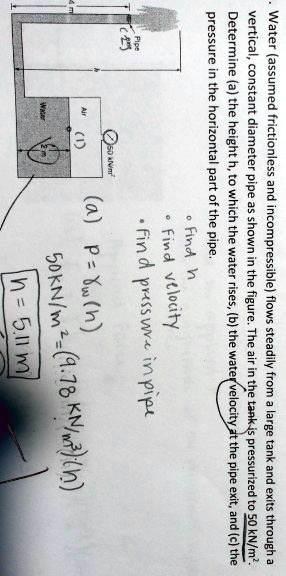 . Water (assumed frictionless and incompressible) flows steadily from a large tank and exits through a
vertical, constant diameter pipe as shown in the figure. The air in the tank is pressurized to 50 kN/m².
Determine (a) the height h, to which the water rises, (b) the water velocity at the pipe exit, and (c) the
pressure in the horizontal part of the pipe.
• find h
• find velocity
• find pressure in pipe
Pipe
exit
(2)
4 m
h
Air
50 kN/m²
(1)
2 m
Water
(a) P = γw(h)
50KN/m² = (9.78 KN/m³)(h)
h = 5.11 m